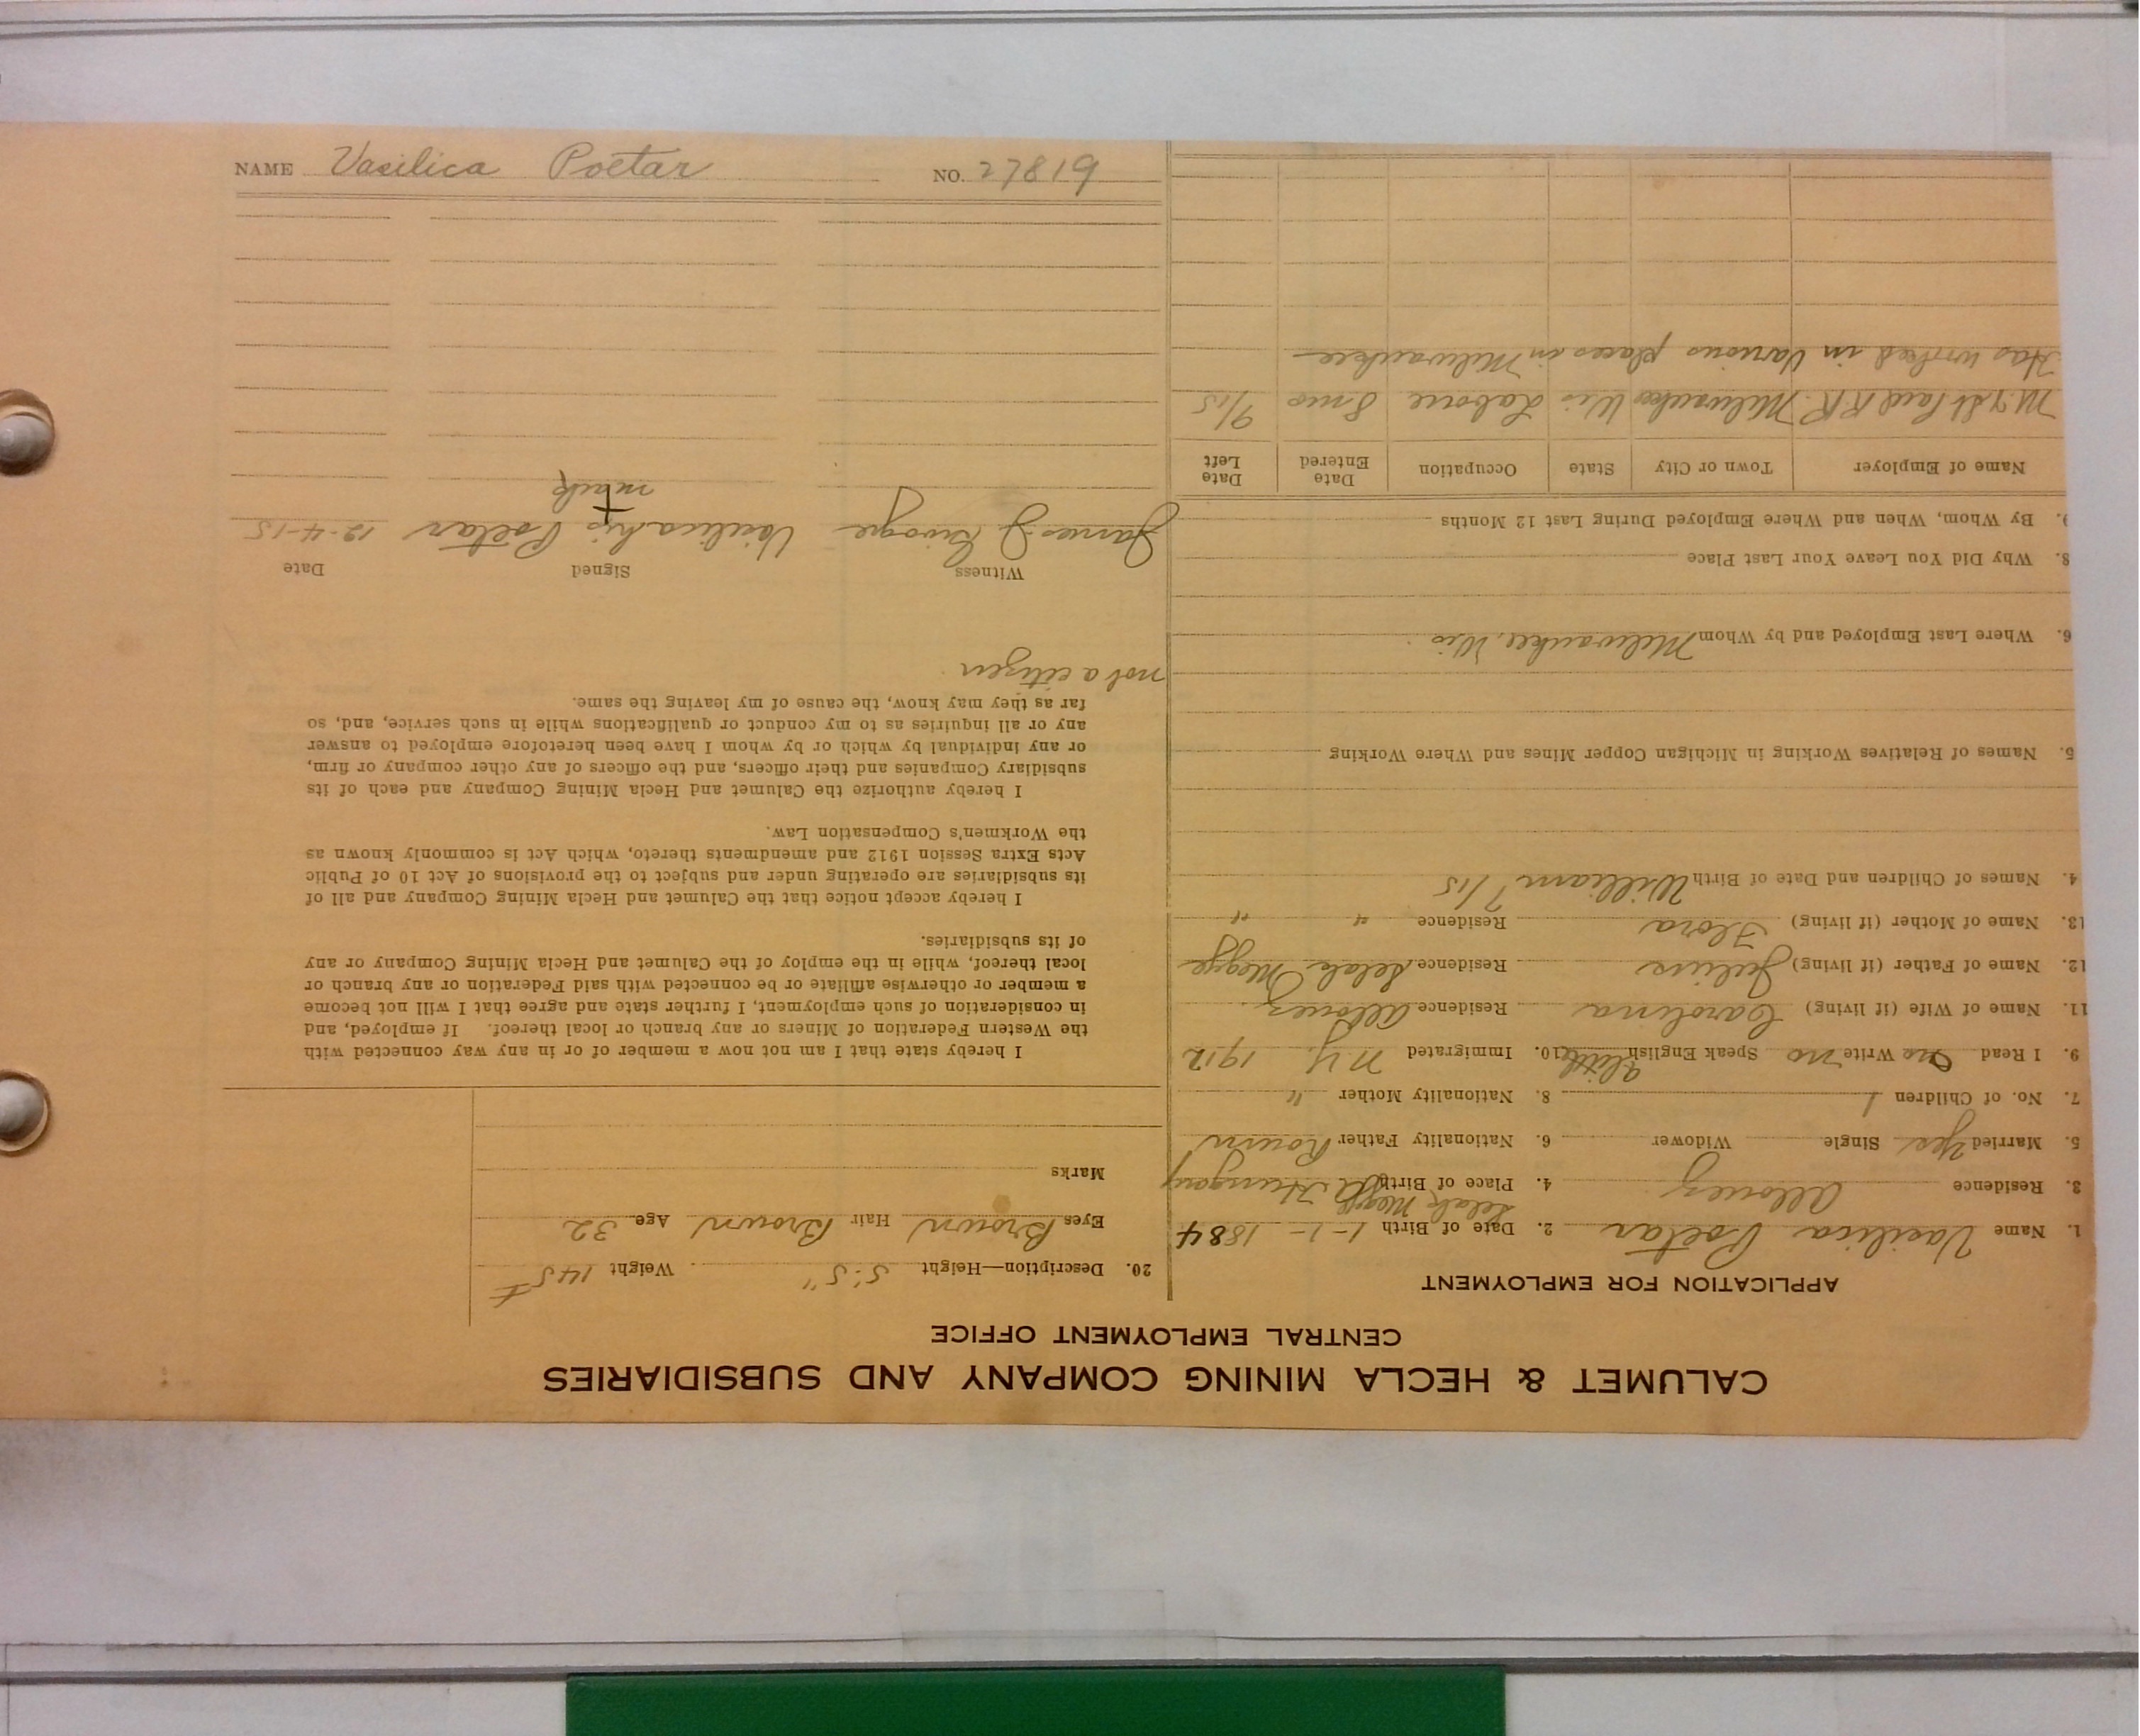 NAME Vasilica Poetar NO. 27819
CALUMET & HECLA MINING COMPANY AND SUBSIDIARIES
CENTRAL EMPLOYMENT OFFICE
APPLICATION FOR EMPLOYMENT
1. Name Vasilica Poetar 2. Date of Birth 1-1-1884
3. Residence Allouez 4. Place of Birth Hungary
5. Married Yes Single Widower 6. Nationality Father Roum
7. No. of Children 1 8. Nationality Mother "
9. I Read no Write no Speak English little 10. Immigrated N Y. 1912
11. Name of Wife (if living) Carolina Residence Allouez
12. Name of Father (if living) Julius Residence Selah Megge
13. Name of Mother (if living) Flora Residence " "
4. Names of Children and Date of Birth William 7/15
5. Names of Relatives Working in Michigan Copper Mines and Where Working
6. Where Last Employed and by Whom Milwaukee, Wis
8. Why Did You Leave Your Last Place
9. By Whom, When and Where Employed During Last 12 Months
Name of Employer Town or City State Occupation Date Entered Date Left
M. & St Paul R.R. Milwaukee Wis Laborer 8 mo 9/15
Has worked in various places in Milwaukee
20. Description—Height 5'.5" Weight 145#
Eyes Brown Hair Brown Age 32
Marks
I hereby state that I am not now a member of or in any way connected with
the Western Federation of Miners or any branch or local thereof. If employed, and
in consideration of such employment, I further state and agree that I will not become
a member or otherwise affiliate or be connected with said Federation or any branch or
local thereof, while in the employ of the Calumet and Hecla Mining Company or any
of its subsidiaries.
I hereby accept notice that the Calumet and Hecla Mining Company and all of
its subsidiaries are operating under and subject to the provisions of Act 10 of Public
Acts Extra Session 1912 and amendments thereto, which Act is commonly known as
the Workmen's Compensation Law.
I hereby authorize the Calumet and Hecla Mining Company and each of its
subsidiary Companies and their officers, and the officers of any other company or firm,
or any individual by which or by whom I have been heretofore employed to answer
any or all inquiries as to my conduct or qualifications while in such service, and, so
far as they may know, the cause of my leaving the same.
not a citizen
Witness Signed Date
James J Vasilica his Poetar 12-4-15
mark